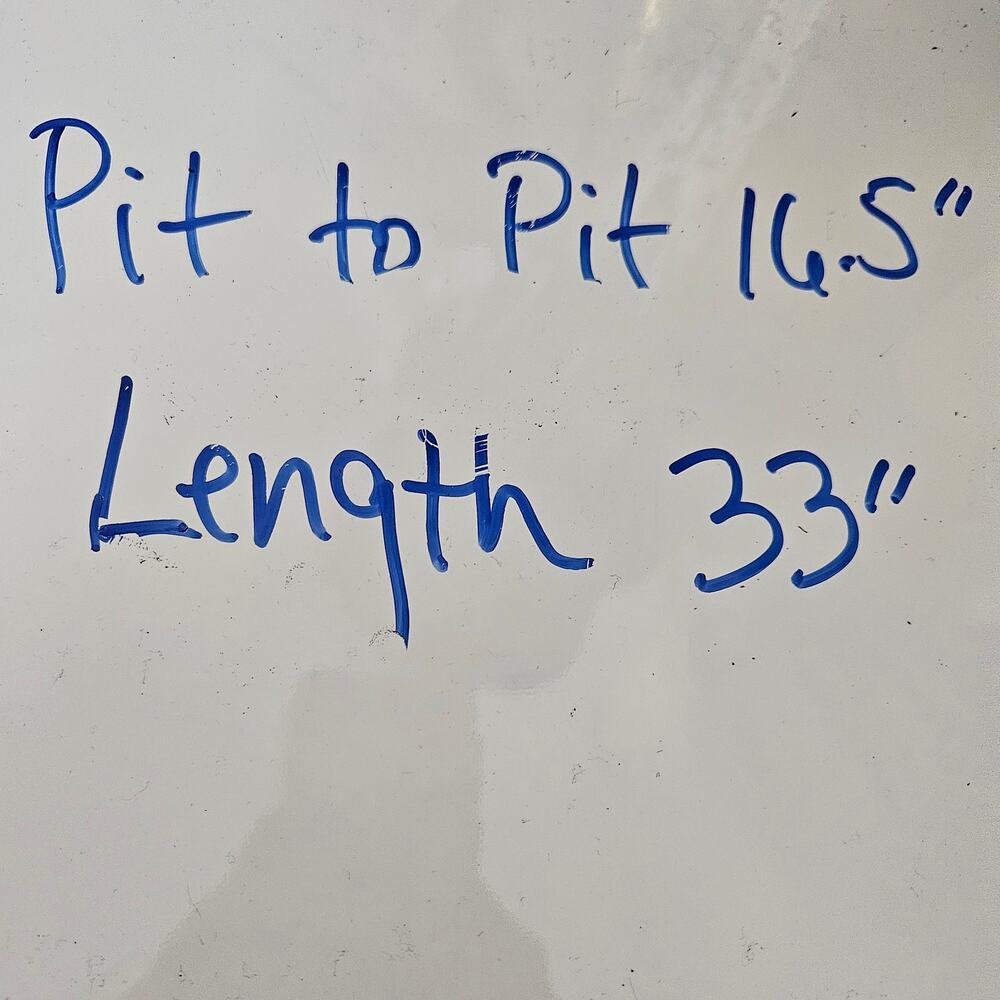 Pit to Pit 16.5"
Length 33"